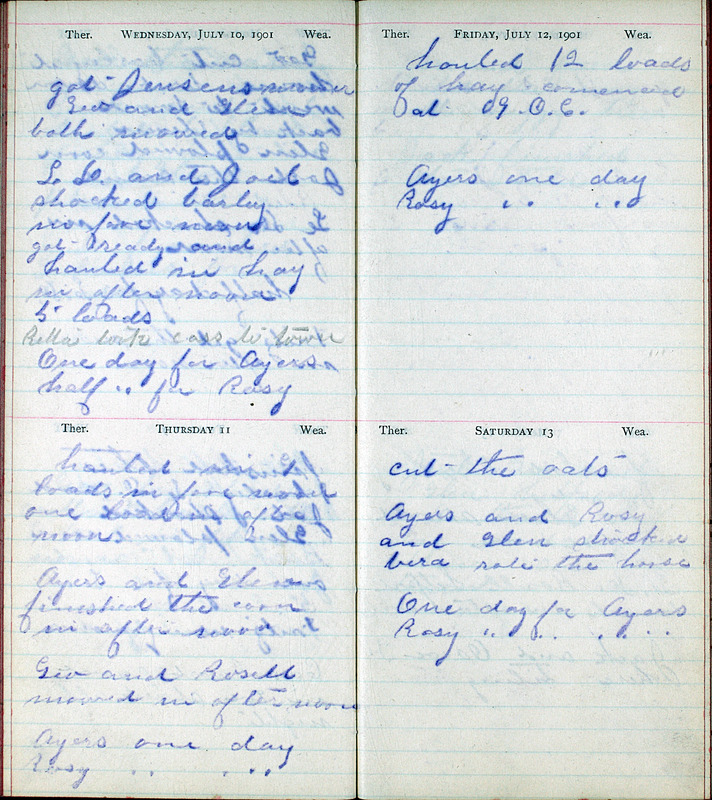 Ther. WEDNESDAY, JULY 10, 1901 Wea.
got Jensens mower
Geo and Glen
both mowed
L. D. and
shocked barley
in fore noon
got ready and
hauled in hay
in after noon
5 loads
Rella took cass to town
One day for Ayers
half " for Rosy
Ther. THURSDAY 11 Wea.
hauled
loads in fore noon
one load in after
noon
Ayers and Glen
finished the corn
in after noon
Geo and Rosell
mowed in after noon
Ayers one day
Rosy " " "
Ther. FRIDAY, JULY 12, 1901 Wea.
hauled 12 loads
of hay comenced
at 09.O.C.
Ayers one day
Rosy " " "
Ther. SATURDAY 13 Wea.
cut the oats
Ayers and Rosy
and Glen shocked
berd rode the horse
One day for Ayers
Rosy " " " "